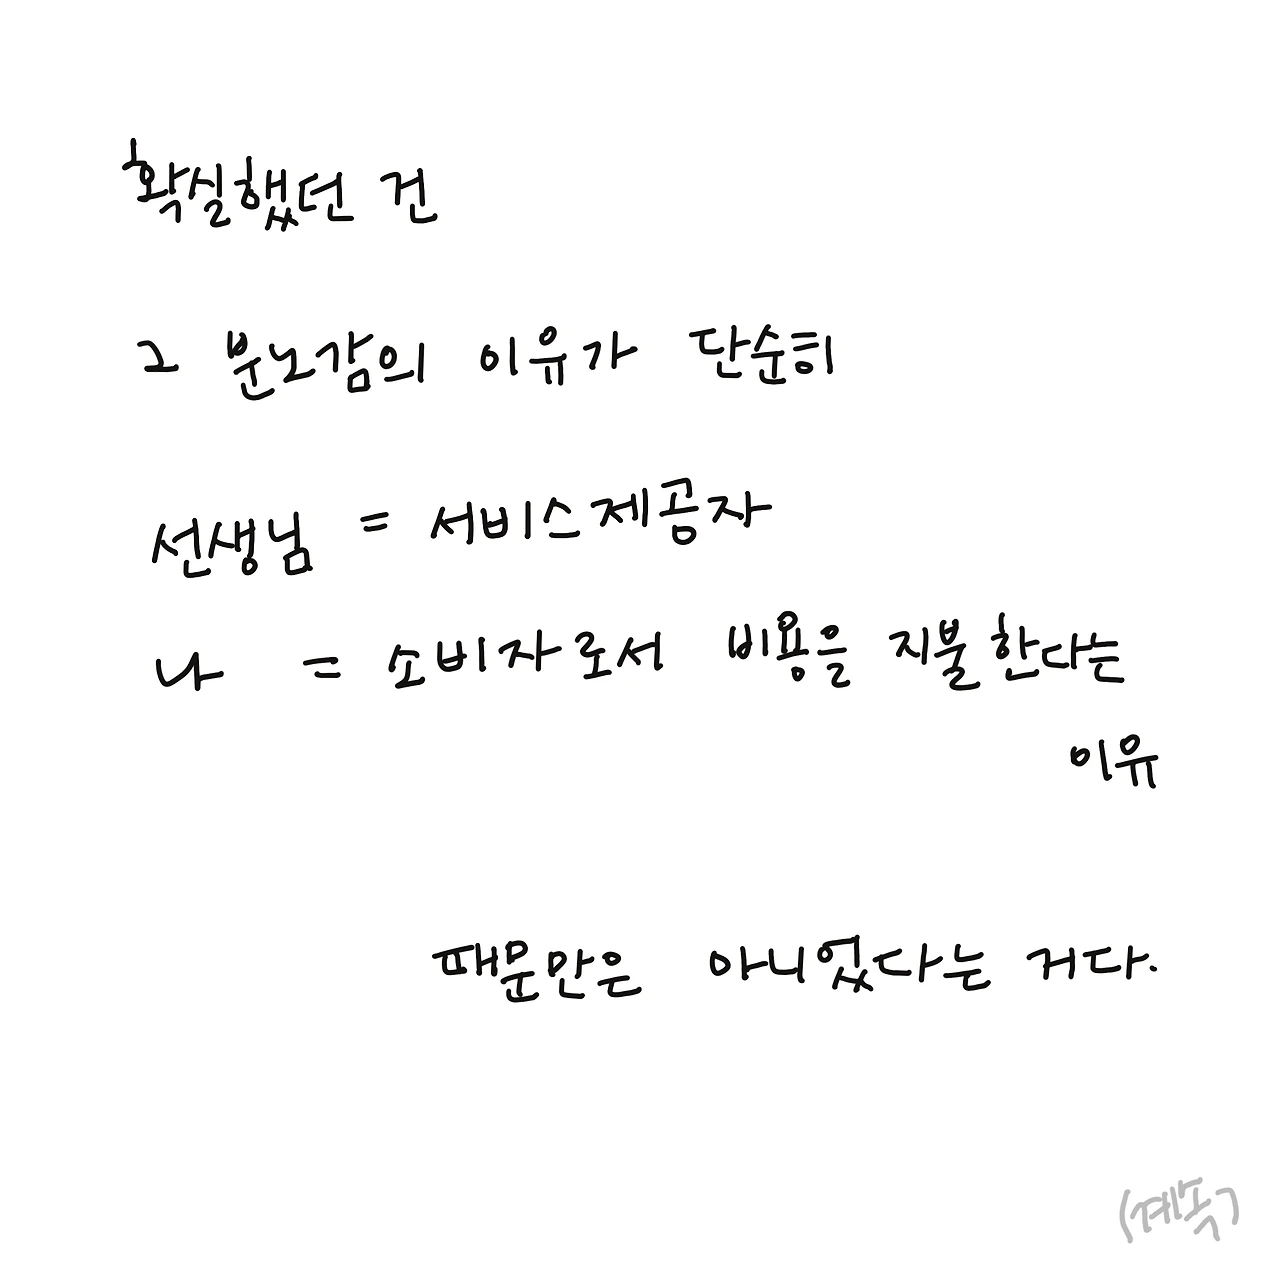 확실했던 건
그 분노감의 이유가 단순히
선생님 = 서비스제공자
나 = 소비자로서 비용을 지불한다는
이유
때문만은 아니었다는 거다.
(계속)